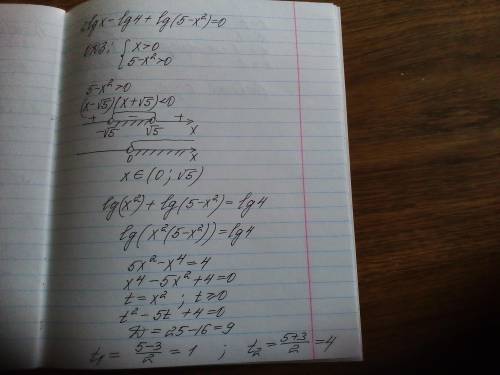 2lgx-lg4+lg(5-x²)=0
ОДЗ: { x>0
5-x²>0
5-x²>0
(x-√5)(x+√5)<0
+ - +
-√5 √5 x
0 x
x∈(0; √5)
lg(x²)+lg(5-x²)=lg4
lg(x²(5-x²))=lg4
5x²-x⁴=4
x⁴-5x²+4=0
t=x² ; t≥0
t²-5t+4=0
D=25-16=9
t₁=(5-3)/2=1 ; t₂=(5+3)/2=4